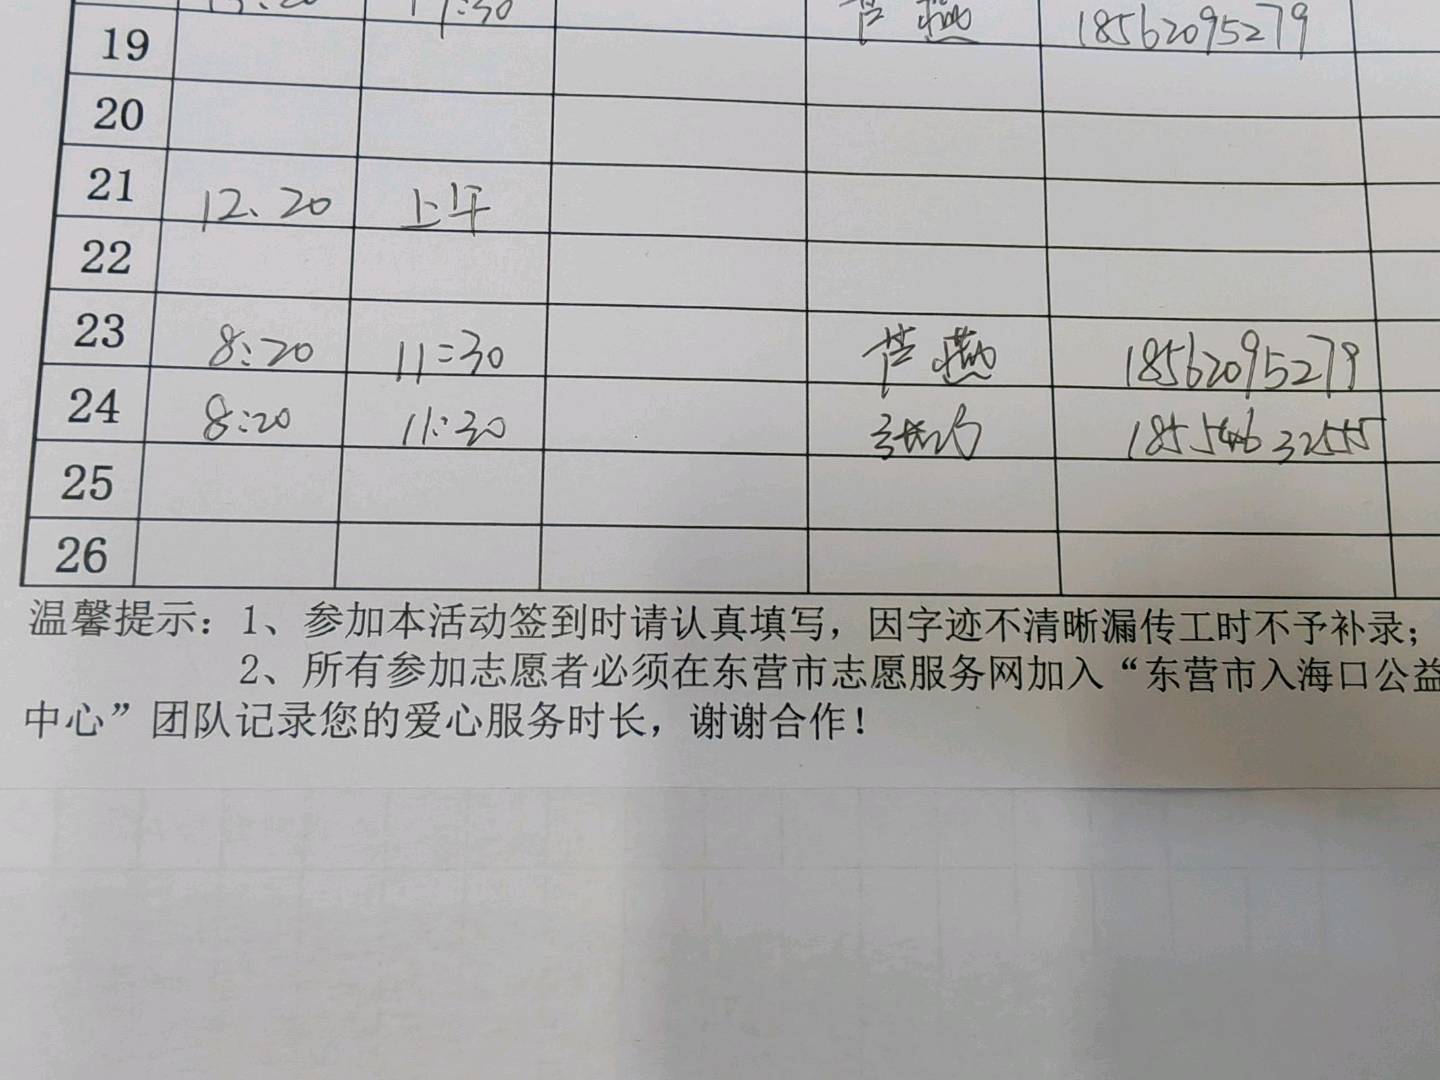 17:30 芦燕 18562095279
19
20
21 12、20 上午
22
23 8:20 11:30 芦燕 18562095279
24 8:20 11:30
25
26
温馨提示：1、参加本活动签到时请认真填写，因字迹不清晰漏传工时不予补录；
2、所有参加志愿者必须在东营市志愿服务网加入“东营市入海口公益
中心”团队记录您的爱心服务时长，谢谢合作！